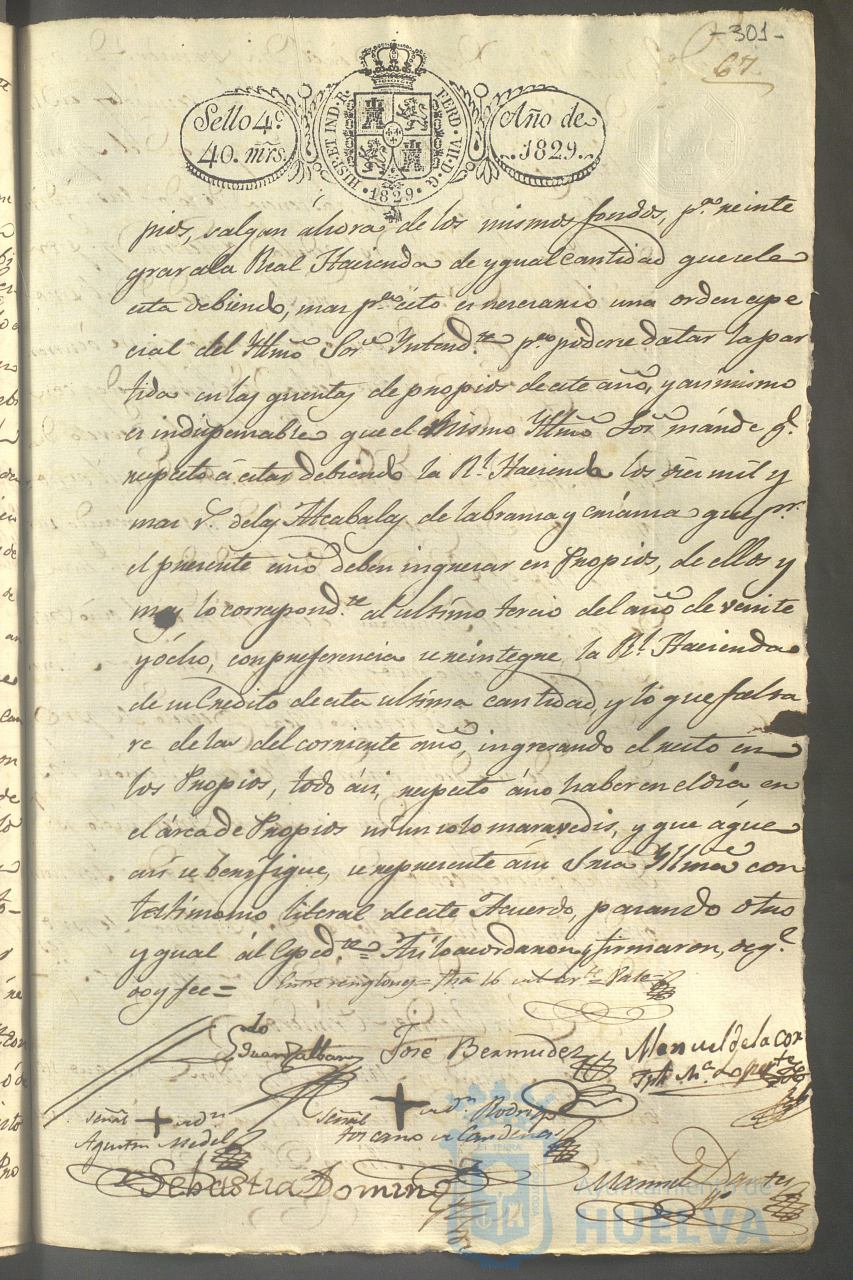 -301-
67.
Sello 4º
40. mrs.
HISP. ET IND. R. FERD. VII. D. G.
1829
Año de
1829.
pios, valgan áhora de los mismos fondos, pª reinte
grar ala Real Hacienda de ygual cantidad que sele
esta debiendo, mas pª esto es nesesario una orden espe
cial del Yllmo Sor Yntendte pª poderse datar la par
tida en las quentas de propios de este año, y asi mismo
es indispensable que el mismo Yllmo Sor mánde q.
respecto á estar debiendo la Rl. Hacienda los seis mil y
mas rs. de las Alcabalas de labranza y crianza que pr.
el presente año deben ingresar en Propios, de ellos y
mas lo correspondte al ultimo tercio del año de veinte
y ócho, con preferencia se reintegre la Rl. Hacienda
de su Credito de esta ultima cantidad, y lo que falta
re de las del corriente año, ingresando el resto en
los Propios, todo ási, respecto áno haber en el dia en
el árca de Propios ni un solo maravedis, y que áque
asi se benifique, se represente ási Sria Yllma con
testimonio literal de este Acuerdo, pasando otro
ygual ál Expedte = Asi lo acordaron y firmaron, de q.
doy fee = Entre renglones =
Jose Bermudez
Manuel de la Cor
te
señal + de
Agustin Medel
señal + de Rodrigo
Toscano
Sebastian Domin
Manuel
Ayuntamiento de
HUELVA